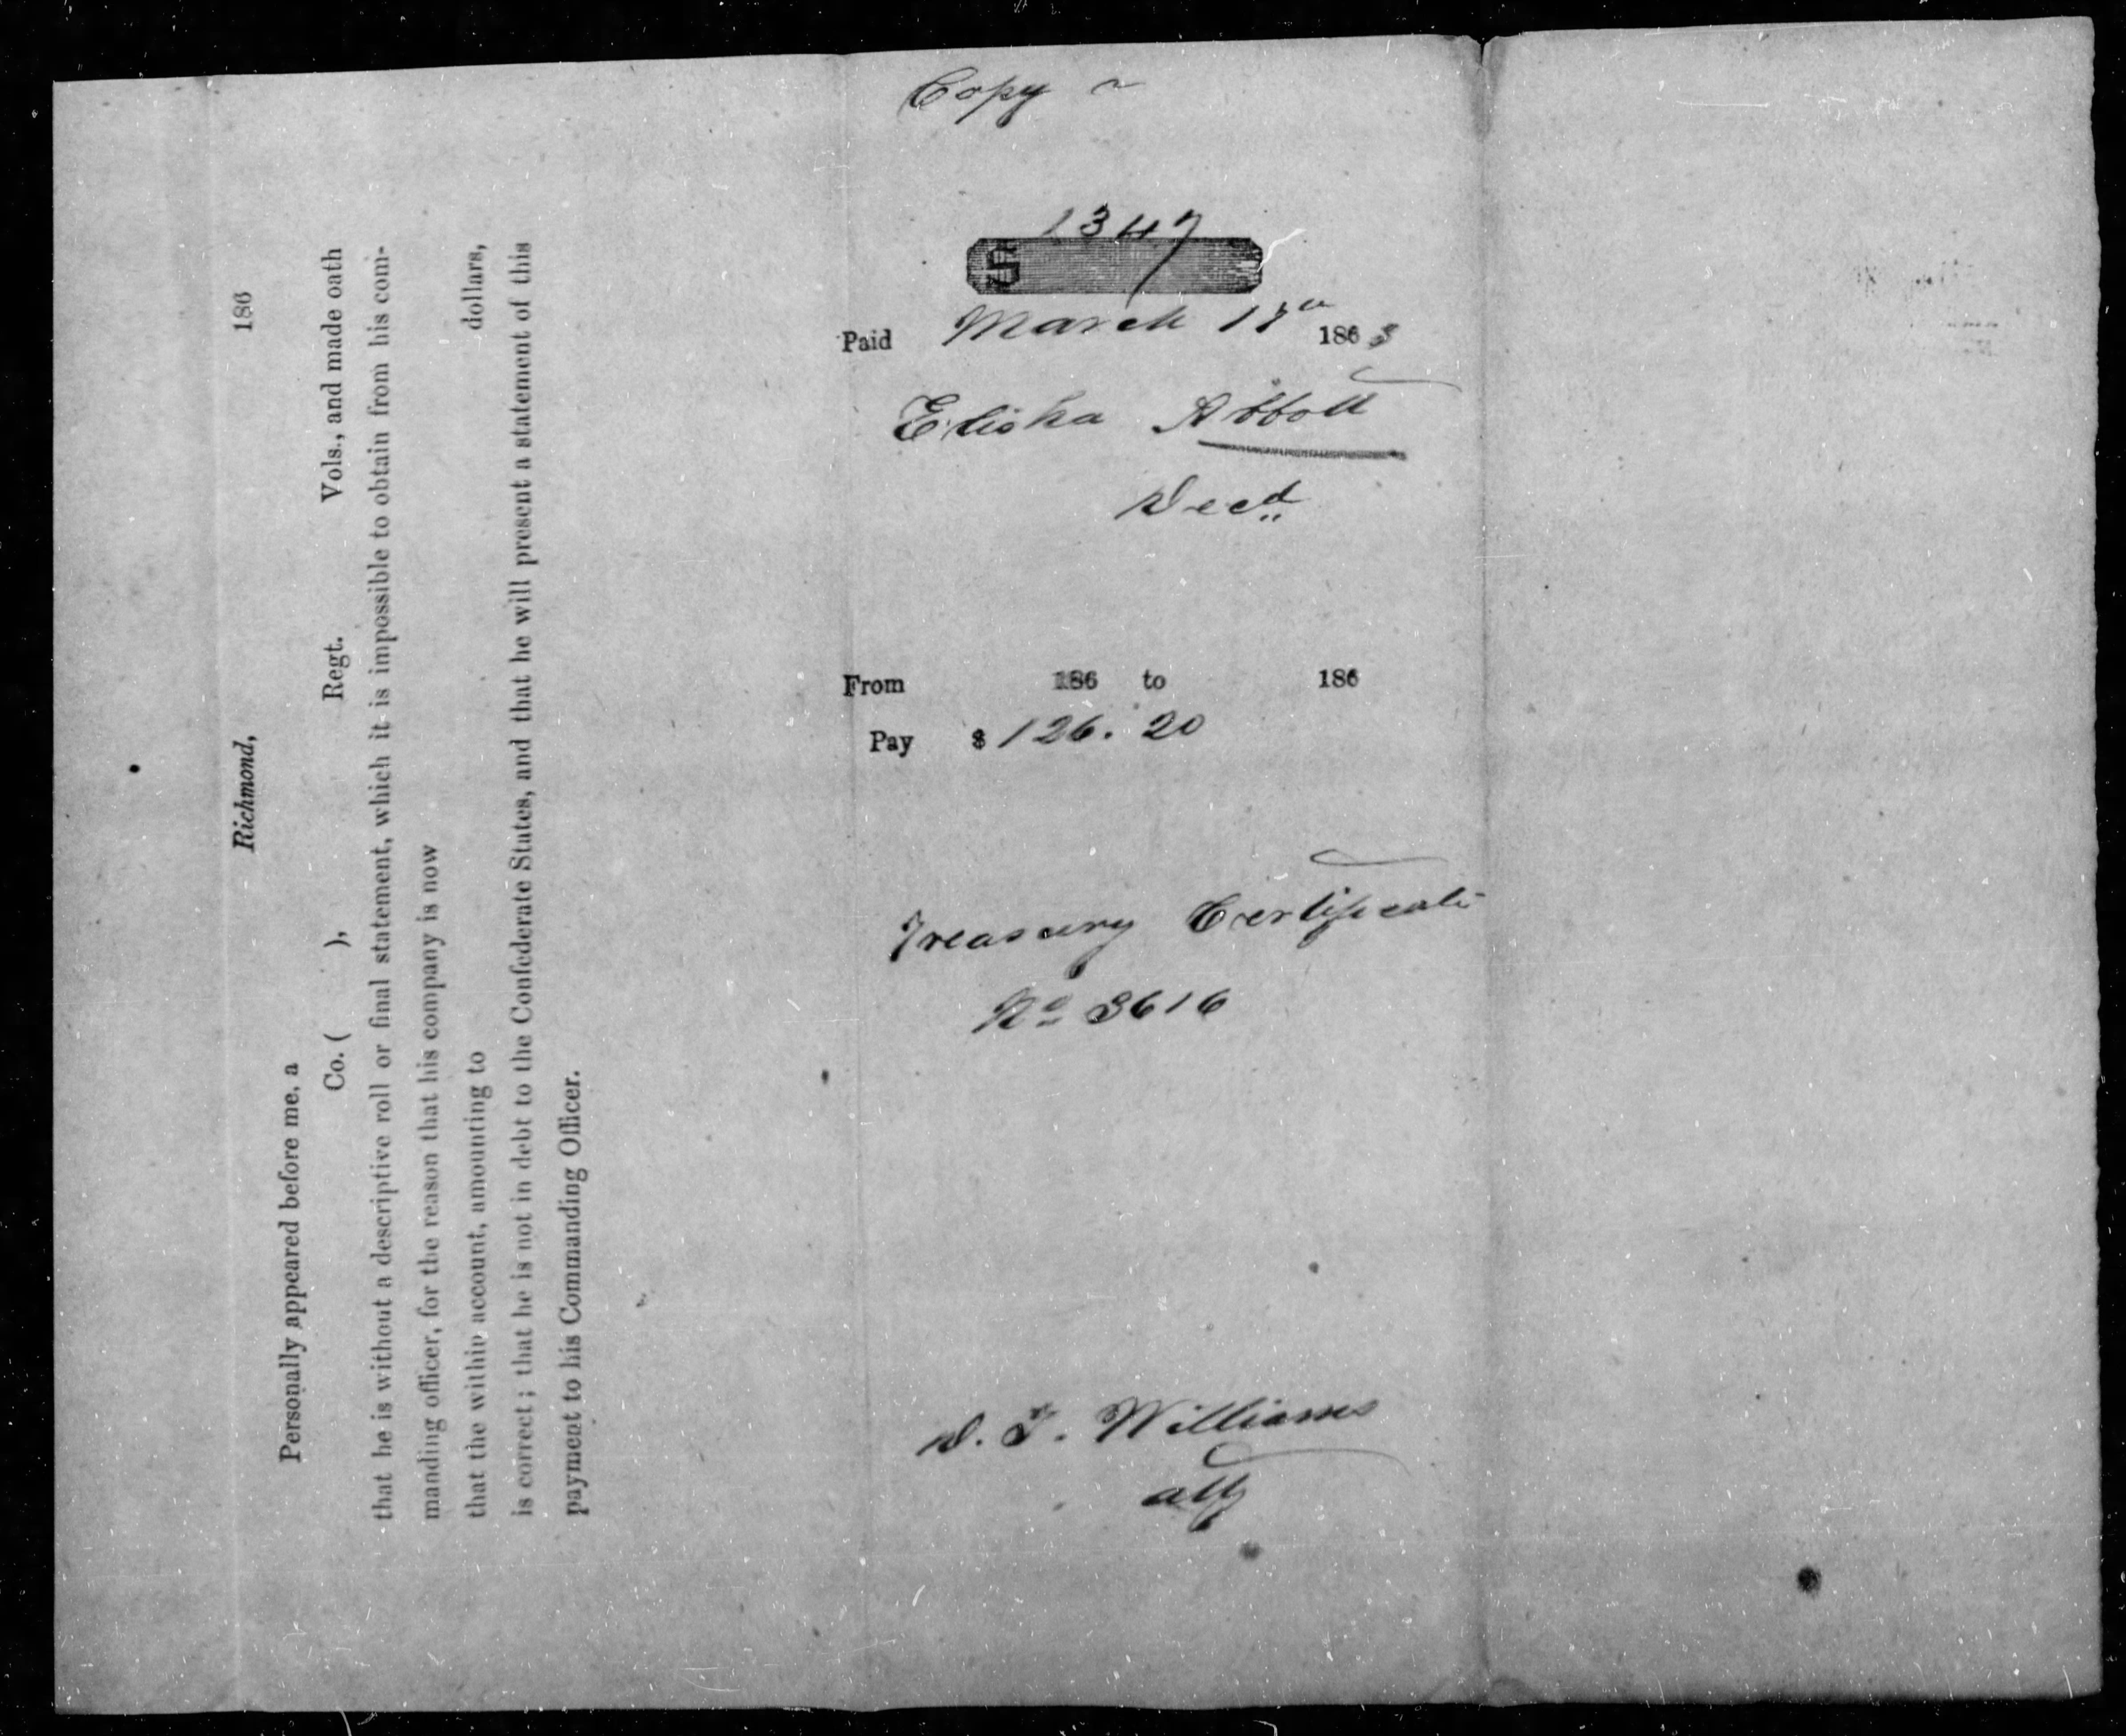 Richmond, 186
Personally appeared before me, a
Co. ( ), Regt. Vols., and made oath
that he is without a descriptive roll or final statement, which it is impossible to obtain from his com-
manding officer, for the reason that his company is now
that the within account, amounting to dollars,
is correct; that he is not in debt to the Confederate States, and that he will present a statement of this
payment to his Commanding Officer.
Copy
1347
Paid March 18th 1863
Elisha Abbott
Decd
From 186 to 186
Pay $ 126.20
Treasury Certificate
No 3616
D. T. Williams
atty